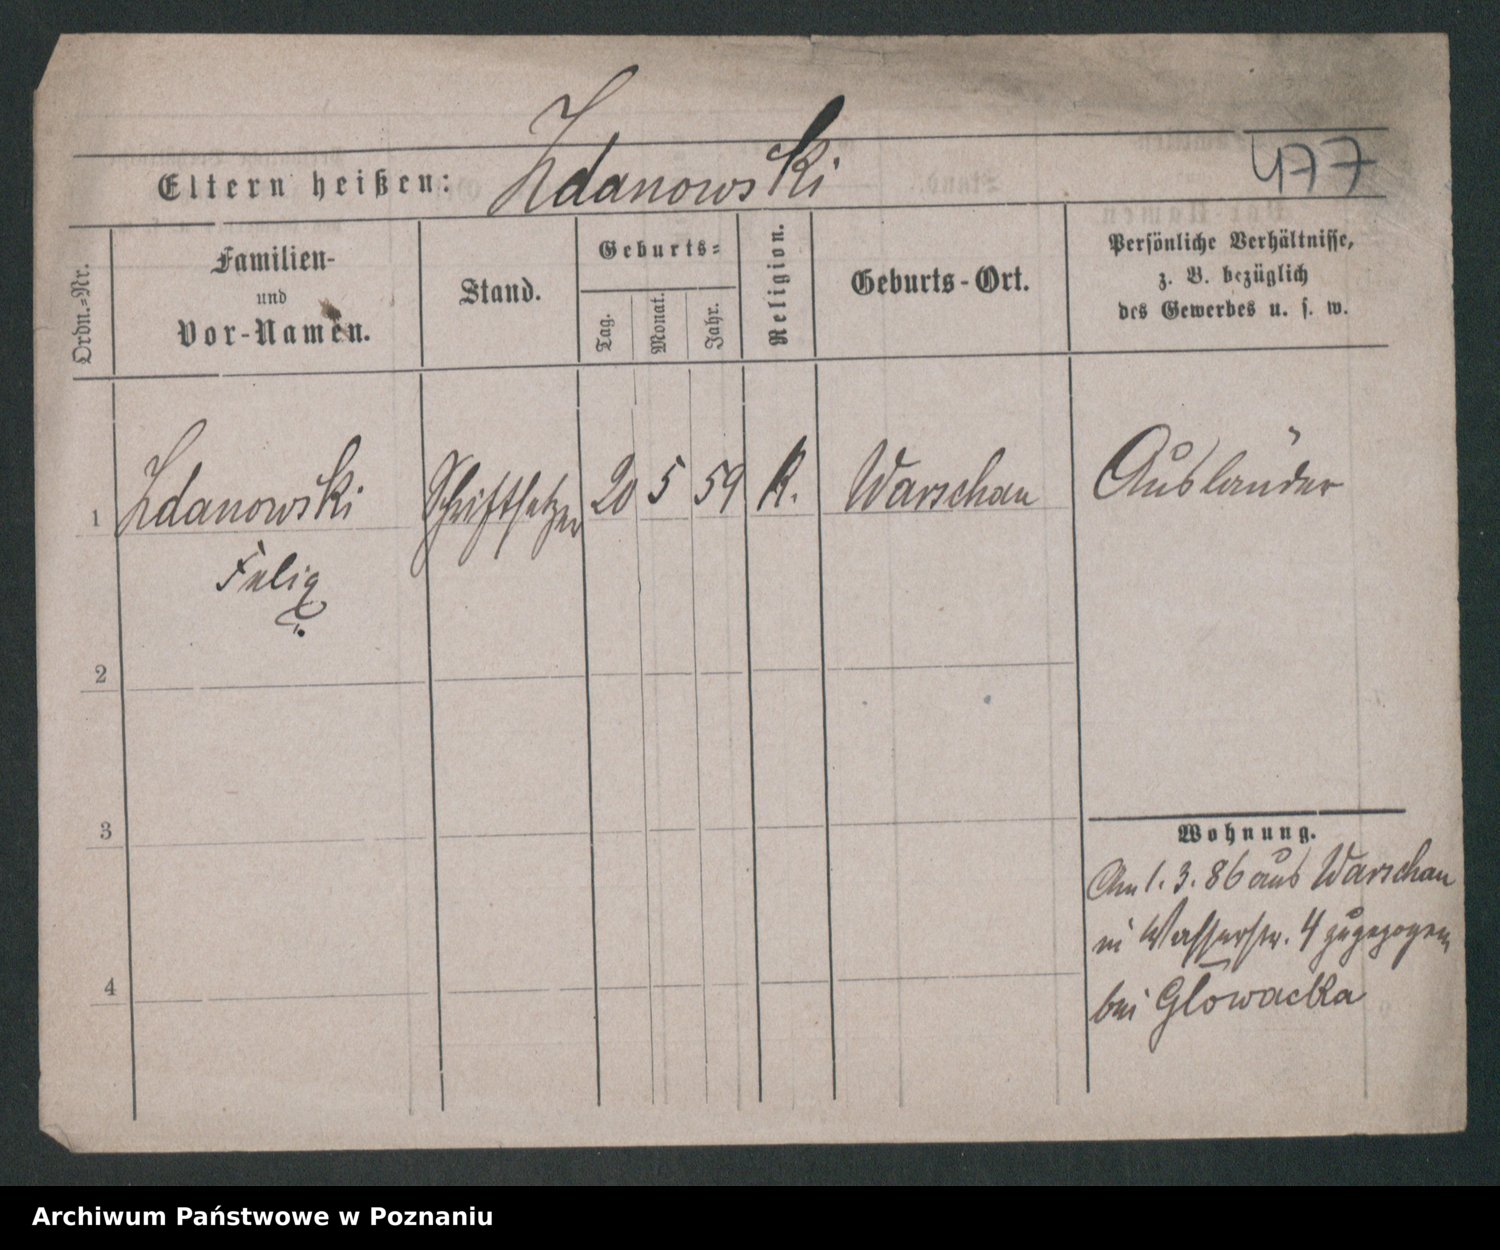 Eltern heißen: Zdanowski
477
Ordn.=Nr.
Familien-
und
Vor-Namen.
Stand.
Geburts=
Tag.
Monat.
Jahr.
Religion.
Geburts-Ort.
Persönliche Verhältnisse,
z. B. bezüglich
des Gewerbes u. s. w.
1 Zdanowski Schriftsetzer 20 5 59 K. Warschau Ausländer
Felix
2
3
4
Wohnung.
Am 1. 3. 86 aus Warschau
in Wasserstr. 4 zugezogen
bei Glowacka
Archiwum Państwowe w Poznaniu